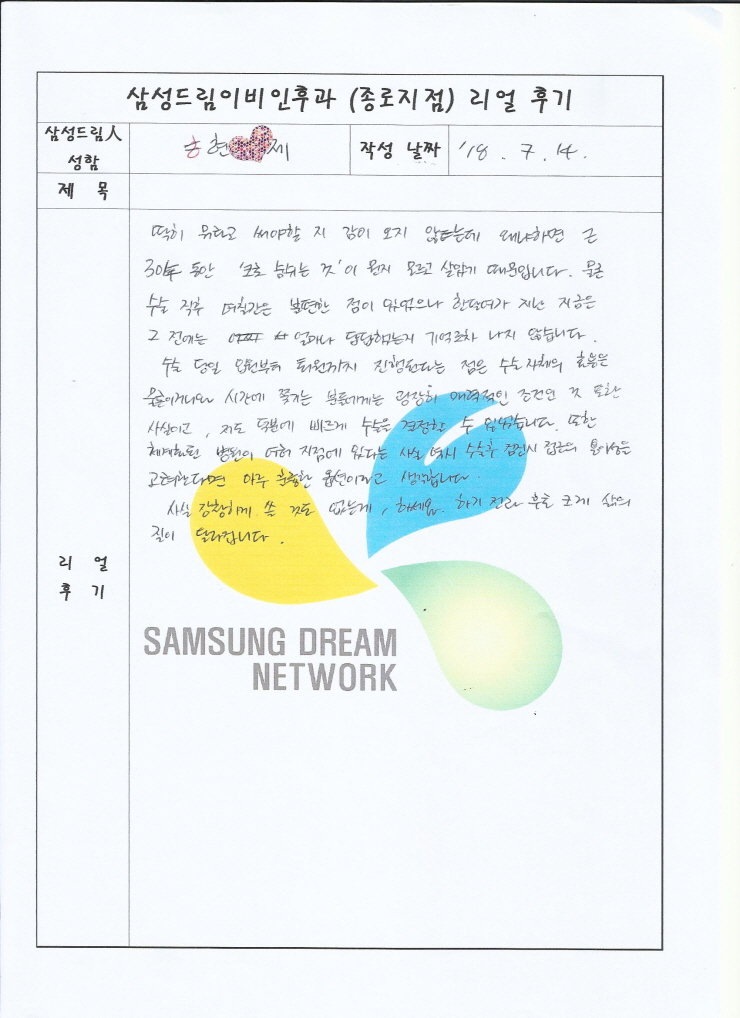 삼성드림이비인후과 (종로지점) 리얼 후기
삼성드림人 성함
송현 제
작성 날짜
'18. 7. 14.
제 목
리 얼 후 기
딱히 뭐라고 써야할 지 감이 오지 않는데 왜냐하면 근
30年 동안 '코로 숨쉬는 것'이 뭔지 모르고 살았기 때문입니다. 물론
수술 직후 며칠간은 불편한 점이 있었으나 한달여가 지난 지금은
그 전에는 얼마나 답답했는지 기억조차 나지 않습니다.
수술 당일 입원부터 퇴원까지 진행된다는 점은 수술 자체의 효율은
물론이거니와 시간에 쫓기는 분들에게는 굉장히 매력적인 조건인 것 또한
사실이고, 저도 덕분에 빠르게 수술을 결정할 수 있었습니다. 또한
체계화된 병원이 여러 지점에 있다는 사실 역시 수술후 점검시 접근의 용이성을
고려한다면 아주 훌륭한 옵션이라고 생각합니다.
사실 장황하게 쓸 것도 없는게, 하세요. 하기 전과 후로 크게 삶의
질이 달라집니다.
SAMSUNG DREAM
NETWORK